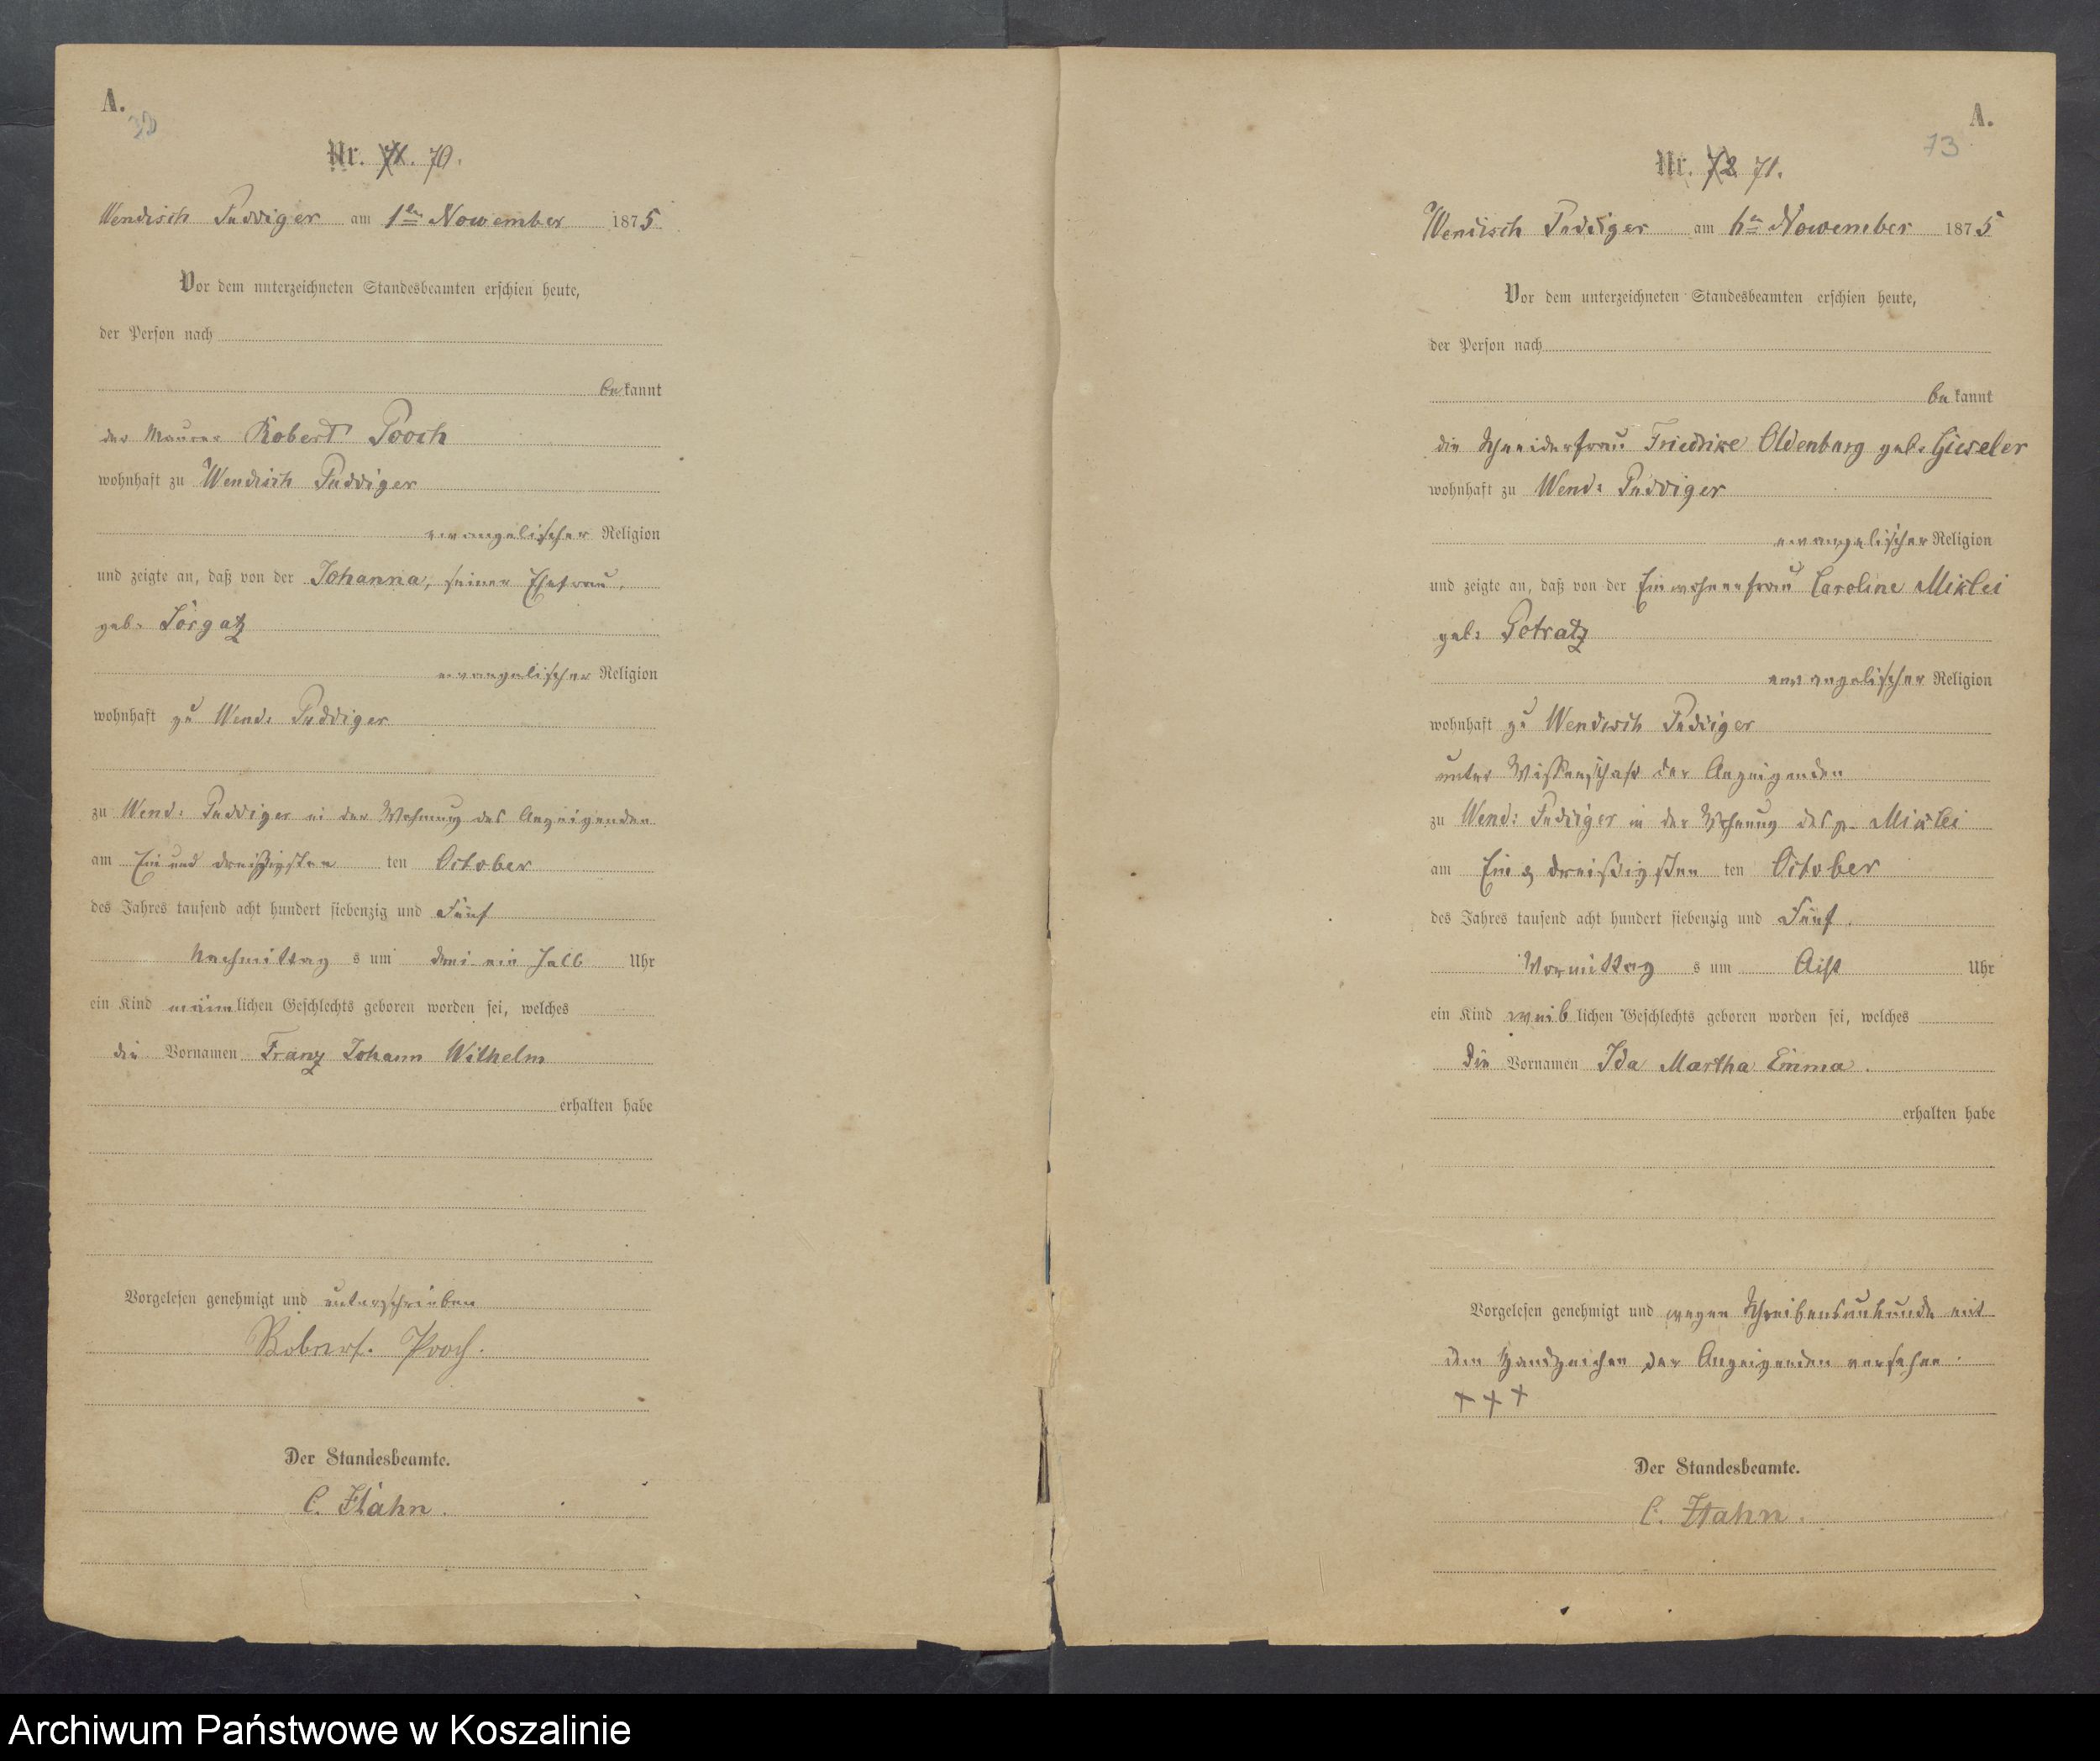 A.
Nr. 71. 70.
Wendisch Puddiger am 1ten November 1875
Vor dem unterzeichneten Standesbeamten erschien heute,
der Person nach
bekannt
der Maurer Robert Pooch
wohnhaft zu Wendisch Puddiger
evangelischer Religion
und zeigte an, daß von der Johanna, seiner Ehefrau,
geb. Torgatz
evangelischer Religion
wohnhaft zu Wend: Puddiger
zu Wend: Puddiger in der Wohnung des Anzeigenden
am Ein und dreißigsten ten October
des Jahres tausend acht hundert siebenzig und Fünf
Nachmittag s um drei ein halb Uhr
ein Kind männlichen Geschlechts geboren worden sei, welches
die Vornamen Franz Johann Wilhelm
erhalten habe
Vorgelesen genehmigt und unterschrieben
Robert. Pooch.
Der Standesbeamte.
C. Hahn.
A.
73
Nr. 72 71.
Wendisch Puddiger am 6ten November 1875
Vor dem unterzeichneten Standesbeamten erschien heute,
der Person nach
bekannt
die Schneiderfrau Friedrike Oldenburg geb. Gieseler
wohnhaft zu Wend: Puddiger
evangelischer Religion
und zeigte an, daß von der Einwohnerfrau Caroline Miklei
geb: Potratz
evangelischer Religion
wohnhaft zu Wendisch Puddiger
unter Wissenschaft der Anzeigenden
zu Wend: Puddiger in der Wohnung des p. Miklei
am Ein & dreißigsten ten October
des Jahres tausend acht hundert siebenzig und Fünf.
Vormittag s um Acht Uhr
ein Kind weiblichen Geschlechts geboren worden sei, welches
die Vornamen Ida Martha Emma.
erhalten habe
Vorgelesen genehmigt und wegen Schreibensunkunde mit
dem Handzeichen der Anzeigenden versehen.
+ + +
Der Standesbeamte.
C. Hahn.
Archiwum Państwowe w Koszalinie